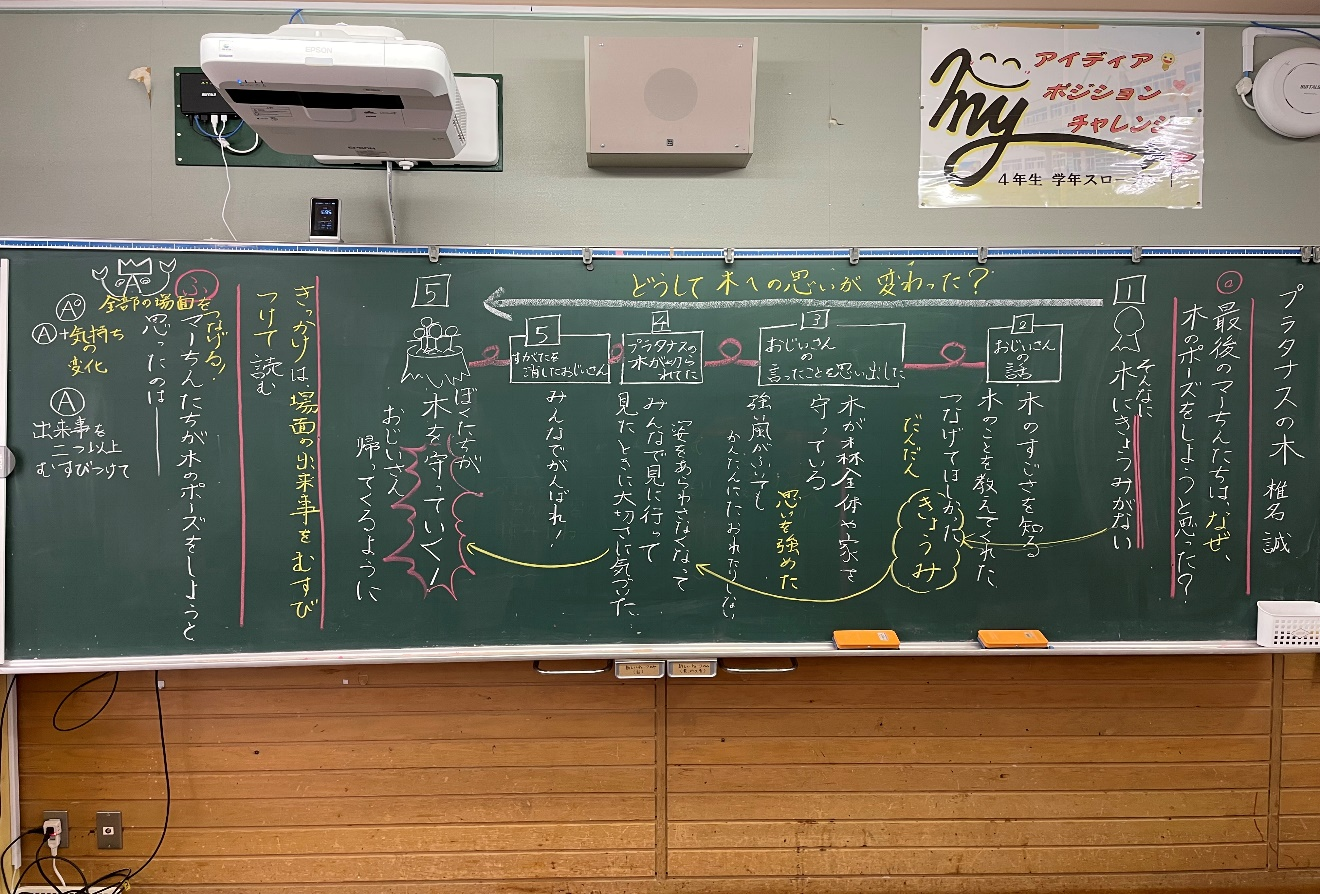 EPSON
アイディア
ポジション
チャレンジ
my
4年生 学年スロー
プラタナスの木 椎名誠
最後のマーちんたちは、なぜ、
木のポーズをしようと思った?
どうして木への思いが変わった?
1
そんなに
木にきょうみがない
2
おじいさん
の話
木のすごさを知る
木のことを教えてくれた
つなげてはしかた
だんだん
きょうみ
3
おじいさん
の
言ったことを思い出した
木が森全体や家を
守っている
思いを強めた
強い風がふいても
かんたんにたおれたりしない
4
プラタナスの
木が切ら
れてた
姿をあらわさなくなって
みんなで見に行って
見たときに大切さに気づいた
5
すがたを
消したおじいさん
みんなでがんばれ!
5
ぼくたちが
木を守っていく!
おじいさん
帰ってくるように
きっかけは、場面の出来事をむすび
つけて読む
ふ
つなげる!
マーちんたちが木のポーズをしようと
思ったのは
全部の場面を
A
A°
A+気持ち
の
変化
A
出来事を
二つ以上
むすびつけて